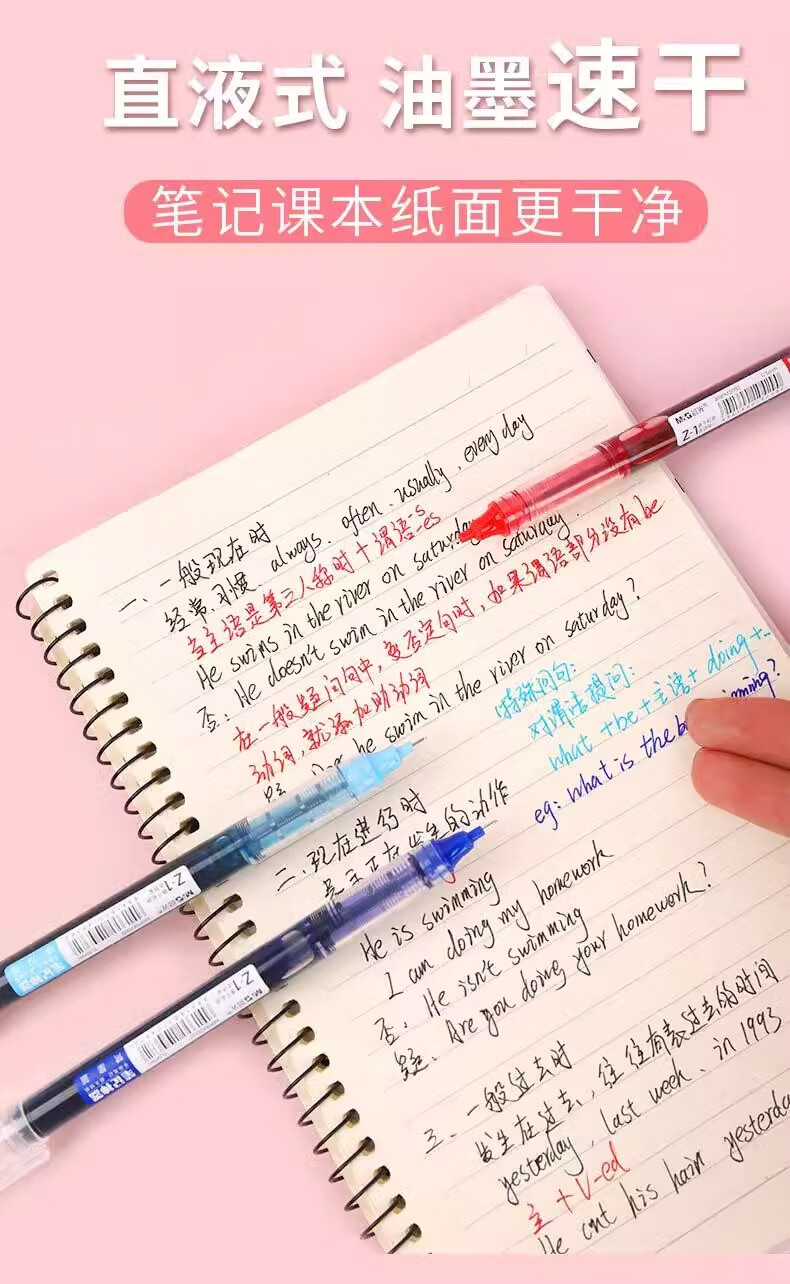 直液式 油墨速干
笔记课本纸面更干净
一、一般现在时
经常、习惯 always、often、usually、every day
当主语是第三人称时+谓语-s
-es
He swims in the river on saturday
否: He doesn't swim in the river on saturday.
在一般疑问句中,变否定句时,如果谓语部分没有be
动词,就添加助动词
he swim in the river on saturday?
特殊问句:
对谓语提问:
what +be+主语+ doing+..
eg: what is the
二、现在进行时
正在发生的动作
He is swimming
I am doing my homework
否: He isn't swimming
疑: Are you doing your homework?
三、一般过去时
发生在过去, 往往有表过去的时间
yesterday, last week、in 1993
主+V-ed
He cut his hair yesterday
M&G
Z-1
0.5mm
M&G
Z-1
笔记神器
M&G
Z-1
笔记神器